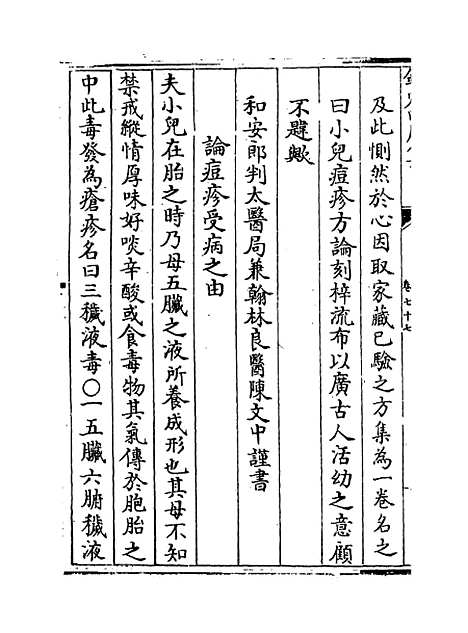 及此惻然於心因取家藏已驗之方集為一卷名之
曰小兒痘疹方論刻梓流布以廣古人活幼之意顧
不韙歟
和安郎判太醫局兼翰林良醫陳文中謹書
論痘疹受病之由
夫小兒在胎之時乃母五臟之液所養成形也其母不知
禁戒縱情厚味好啖辛酸或食毒物其氣傳於胞胎之
中此毒發為瘡疹名曰三穢液毒〇一五臟六腑穢液
卷七十七